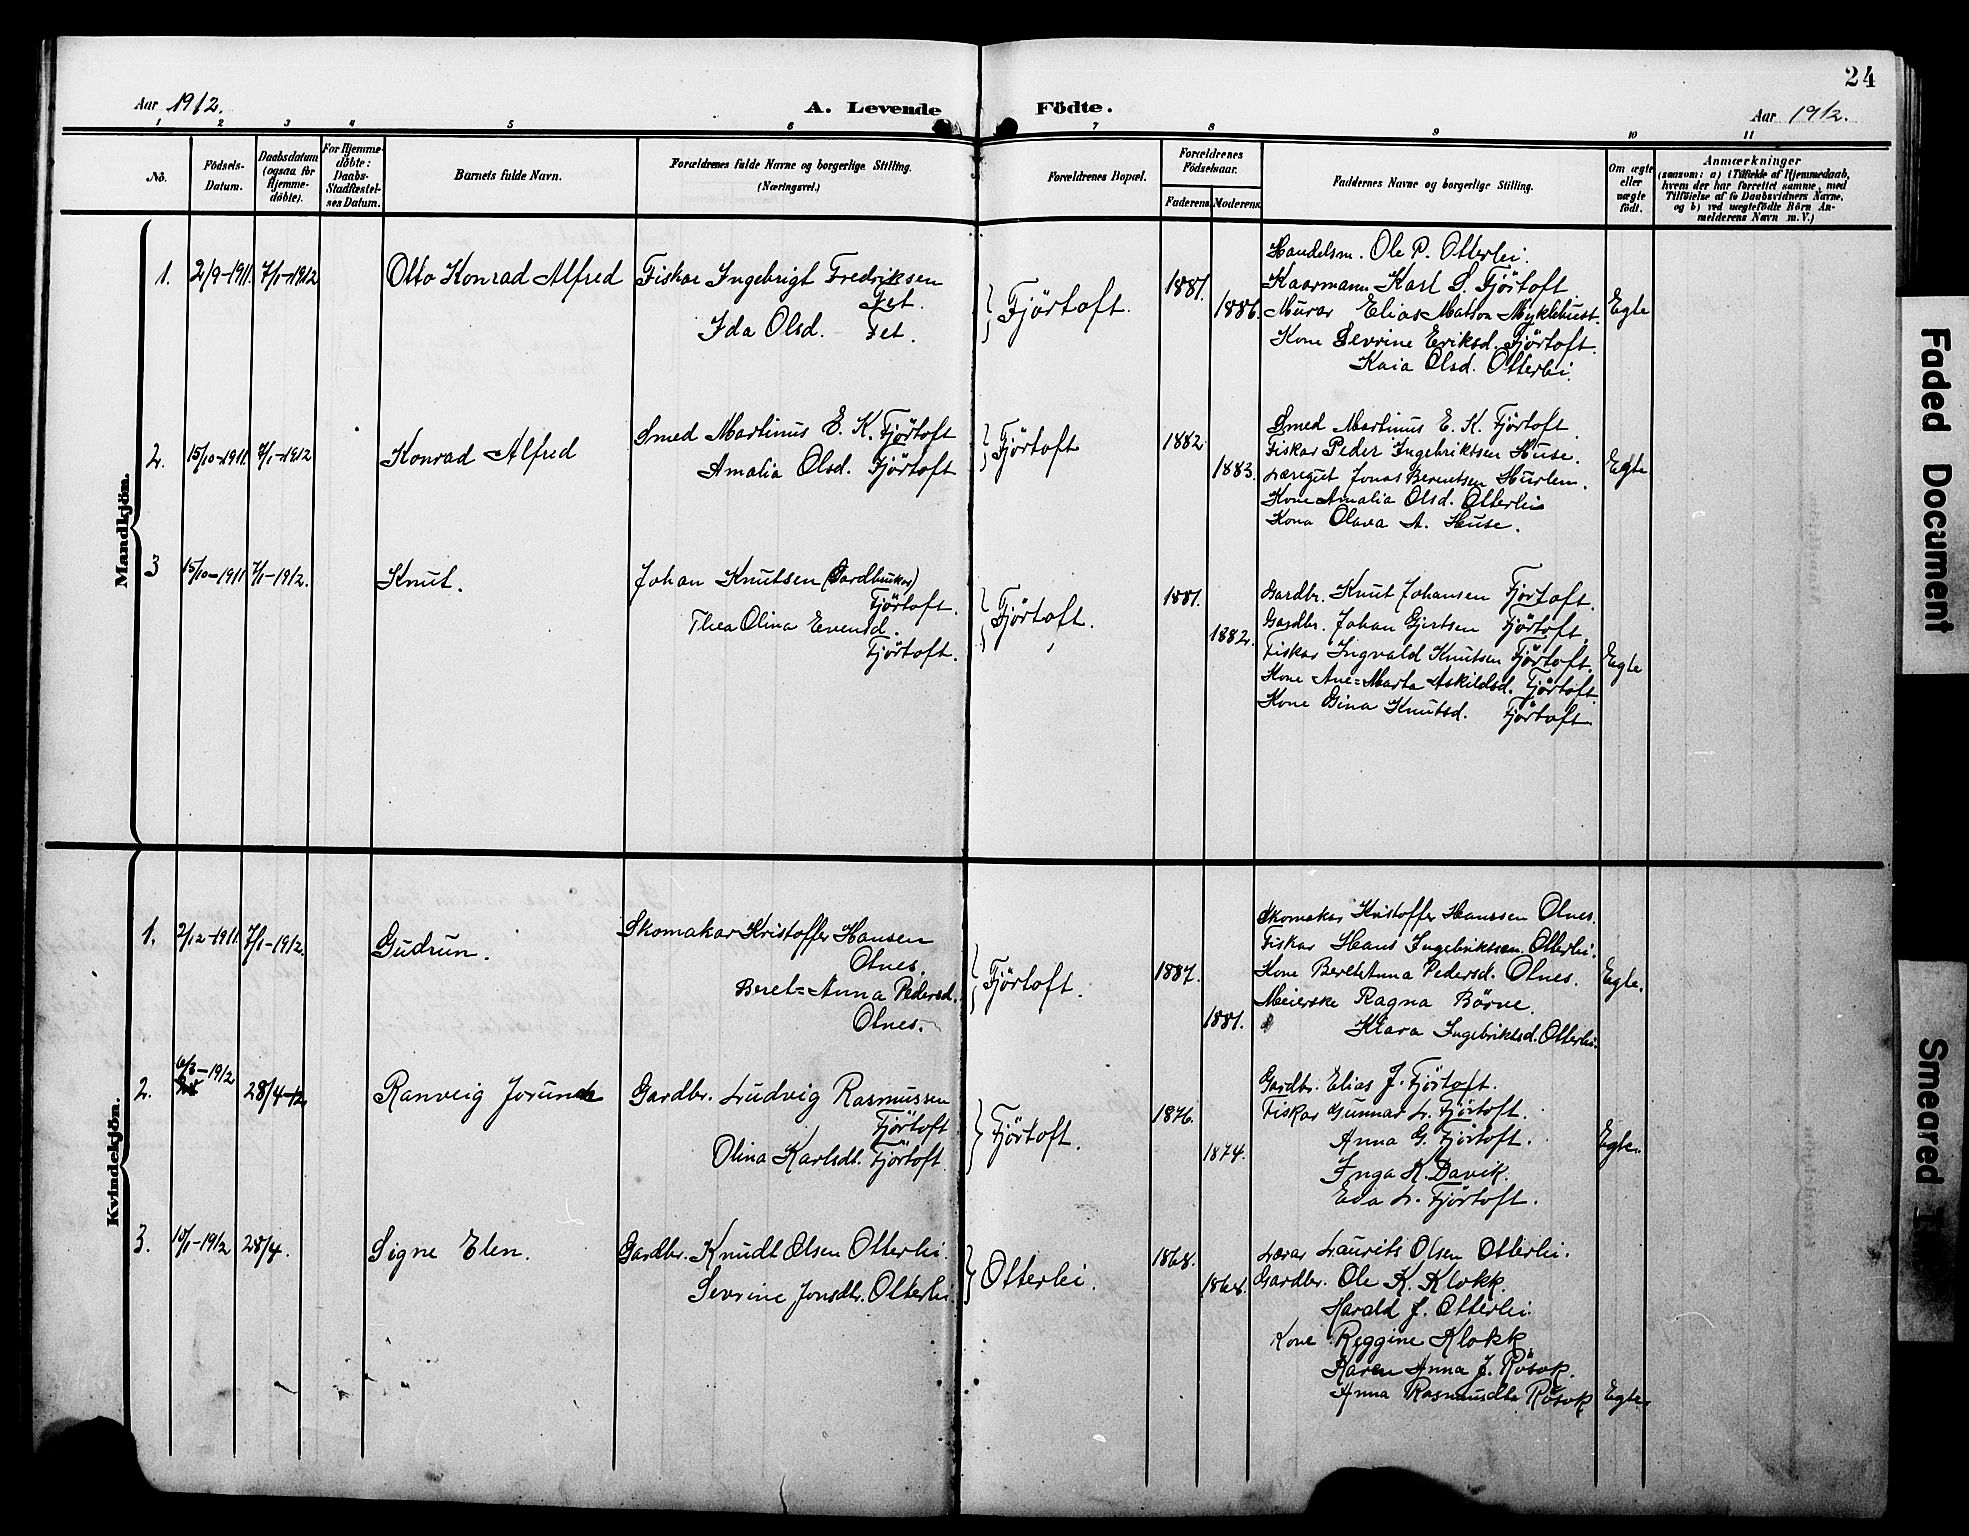 24
Aar 1912. A. Levende Födte. Aar 1912.
1 2 3 4 5 6 7 8 9 10 11
Nö.
Födsels-
Datum.
Daabsdatum
(ogsaa för
Hjemme-
döbte).
For Hjemme-
döbte:
Daabs-
Stadfæstel-
ses Datum.
Barnets fulde Navn.
Forældrenes fulde Navne og borgerlige Stilling.
(Næringsvei.)
Forældrenes Bopæl.
Forældrenes
Födselsaar.
Faderens. Moderens.
Faddernes Navne og borgerlige Stilling.
Om ægte
eller
uægte
födt.
Anmærkninger
(saasom: a) i Tilfælde af Hjemmedaab,
hvem der har forrettet samme, med
Tilföielse af to Daabsvidners Navne,
og b) ved uægtefödte Börn An-
melderens Navn m. V.)
Mandkjön.
1. 2/9-1911. 7/1-1912 Otto Konrad Alfred
Fiskar Ingebrigt Fredriksen
Fet.
Ida Olsd. Fet.
Fjörtoft.
1881.
1886.
Handelsm. Ole P. Otterlei.
Kaarmann Karl S. Fjörtoft
Murar Elias Matson Myklebust.
Kone Sevrine Eriksd. Fjörtoft.
Kaia Olsd. Otterlei.
Egte
2. 15/10-1911. 7/1-1912 Konrad Alfred
Smed Martinus E. K. Fjörtoft
Amalia Olsd. Fjörtoft
Fjörtoft
1882
1883.
Smed Martinus E. K. Fjörtoft
Fiskar Peder Ingebriktsen Huse.
Læregut Jonas Berentsen Hurlen.
Kone Amalia Olsd. Otterlei
Kona Olava A. Huse.
Egte
3 15/10-1911 7/1-1912. Knut.
Johan Knutsen (Gardbrukar)
Fjörtoft.
Thea Olina Evensd.
Fjörtoft.
Fjörtoft.
1881.
1882.
Gardbr. Knut Johansen Fjörtoft.
Gardbr. Johan Gjertsen Fjörtoft.
Fiskar Ingvald Knutsen Fjörtoft.
Kone Ane=Marta Askildsd. Fjörtoft
Kone Gina Knutsd. Fjörtoft.
Egte
Kvindekjön.
1. 2/12-1911. 7/1-1912. Gudrun.
Skomakar Kristoffer Hansen
Olnes.
Beret=Anna Pedersd.
Olnes.
Fjörtoft.
1887.
1881.
Skomakar Kristoffer Hanssen Olnes.
Fiskar Hans Ingebriktsen. Otterlei.
Kone BeretAnna Pedersd. Olnes.
Meierske Ragna Börve.
Klara Ingebriktsd. Otterlei.
Egte.
2. 6/3-1912 28/4-12 Ranveig Jorunn
Gardbr. Ludvig Rasmussen
Fjörtoft
Olina Karlsdt. Fjörtoft
Fjörtoft.
1876.
1874.
Gardbr. Elias J. Fjörtoft.
Fiskar Gunnar L. Fjörtoft.
Anna G. Fjörtoft.
Inga K. Davik.
Eva L. Fjörtoft.
Egte.
3. 10/1-1912 28/4. Signe Elen.
Gardbr. Knudt Olsen Otterlei.
Sevrine Jonsdtr. Otterlei.
Otterlei.
1868.
1868.
Lærar Laurits Olsen Otterlei.
Gardbr. Ole K. Klokk.
Harald J. Otterlei
Kone Reggine Klokk
Karen Anna J. Rösok.
Anna Rasmusdtr Rösok
Egte.
Faded Document
Smeared